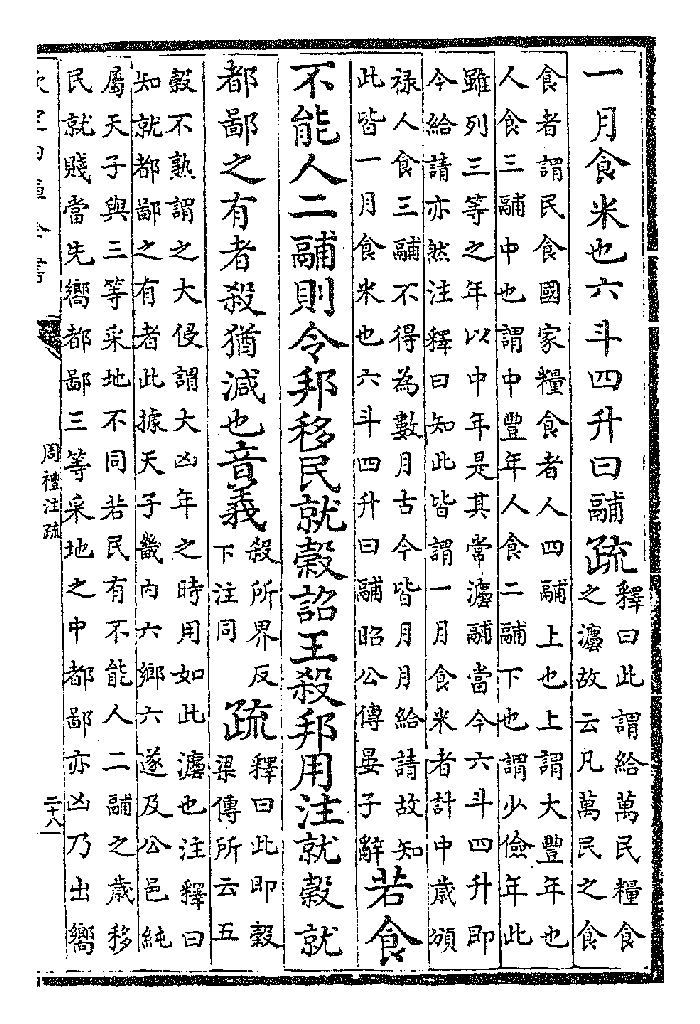 一月食米也六斗四升曰鬴疏釋曰此謂給萬民糧食
之灋故云凡萬民之食
食者謂民食國家糧食者人四鬴上也上謂大豐年也
人食三鬴中也謂中豐年人食二鬴下也謂少儉年此
雖列三等之年以中年是其常灋鬴當今六斗四升即
今給請亦然注釋曰知此皆謂一月食米者計中歲頒
祿人食三鬴不得為數月古今皆月月給請故知
此皆一月食米也六斗四升曰鬴昭公傳晏子辭若食
不能人二鬴則令邦移民就榖詔王殺邦用注就榖就
都鄙之有者殺猶減也音義殺所界反
下注同
疏釋曰此即榖
梁傳所云五
榖不熟謂之大侵謂大凶年之時用如此灋也注釋曰
知就都鄙之有者此據天子畿内六鄉六遂及公邑純
屬天子與三等采地不同若民有不能人二鬴之歲移
民就賤當先嚮都鄙三等采地之中都鄙亦凶乃出嚮
周禮注疏
二十八